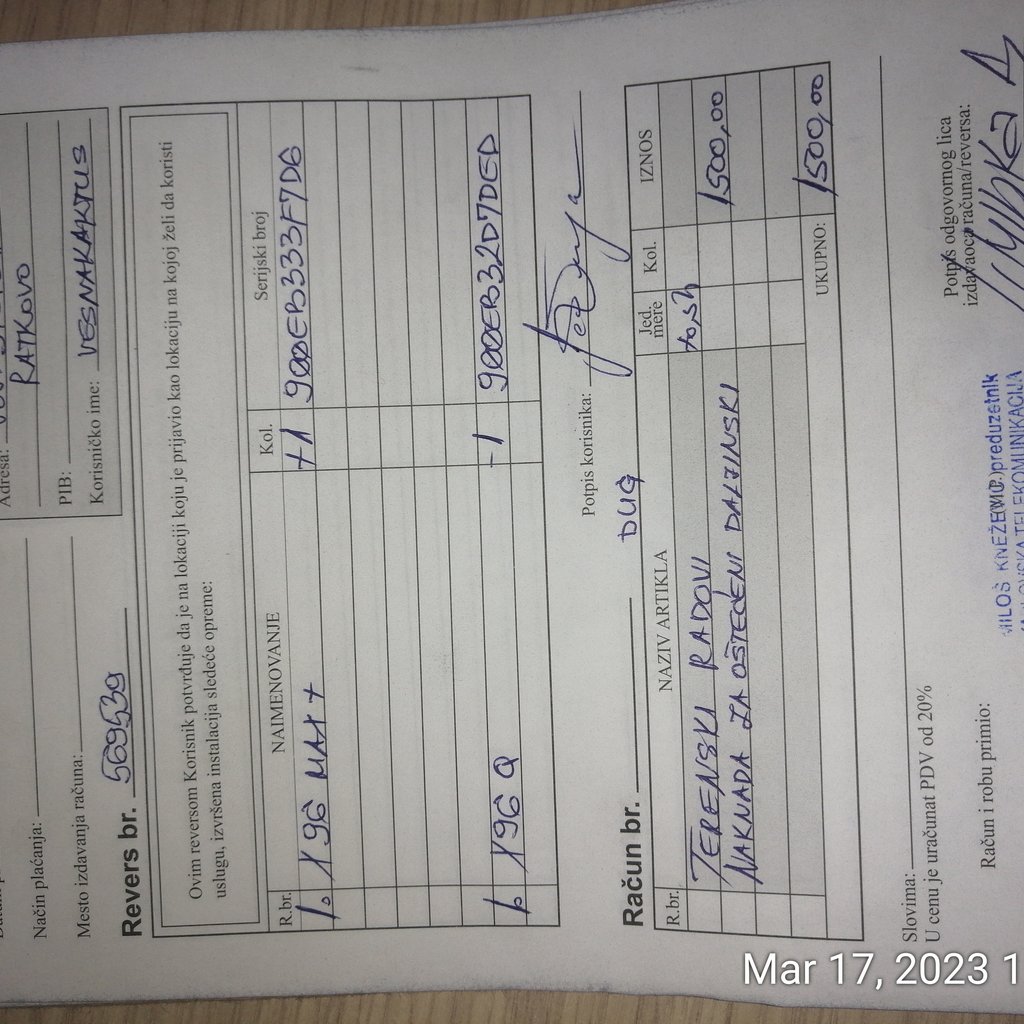 Adresa:
RATKOVO
PIB:
Korisničko ime: VESNAKAKTUS
Način plaćanja:
Mesto izdavanja računa:
Revers br. 569539
Ovim reversom Korisnik potvrđuje da je na lokaciji koju je prijavio kao lokaciju na kojoj želi da koristi
uslugu, izvršena instalacija sledeće opreme:
R.br. NAIMENOVANJE Kol. Serijski broj
1. 196 MAX+ +1 900EB333F7D6
1. 196 Q -1 900EB32D7DED
Potpis korisnika:
Račun br. DUG
R.br. NAZIV ARTIKLA Jed. mere Kol. IZNOS
TERENSKI RADOVI to,sh
NAKNADA ZA OŠTEĆENI DALJINSKI 1500,00
UKUPNO: 1500,00
Slovima:
U cenu je uračunat PDV od 20%
Račun i robu primio:
Potpis odgovornog lica
izdavaoca računa/reversa:
MILOŠ KNEŽEVIĆ preduzetnik
TELEKOMUNIKACIJA
Mar 17, 2023 1